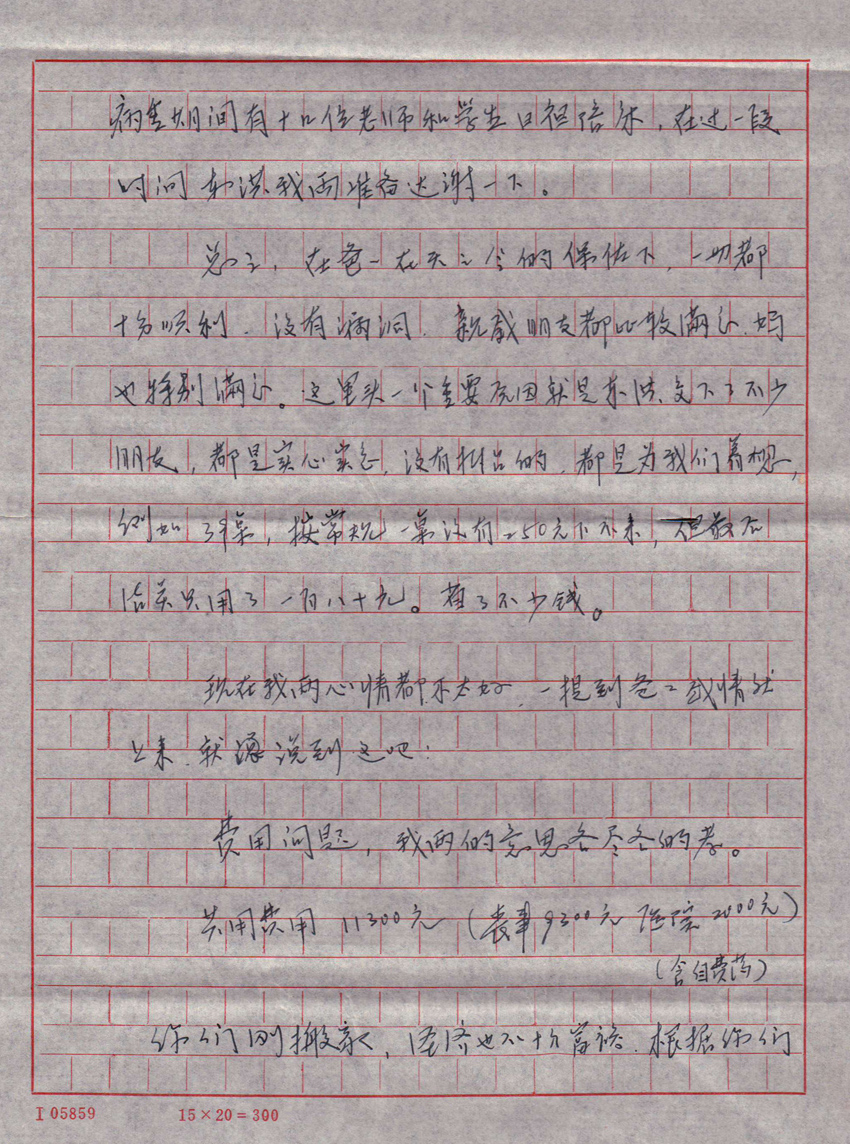 病重期间有十几位老师和学生日夜陪床，在过一段
时间东洪我两准备达谢一下。
总之，在爸一在天之灵的保佑下，一切都
十分顺利．没有漏洞．亲戚朋友都比较满意．妈
也特别满意。这里头一个重要原因就是东洪交下了不少
朋友，都是实心实意，没有挑品的，都是为我们着想，
例如39桌，按常规一桌没有250元下不来，但最后
结算只用了一百八十元。省了不少钱。
现在我两心情都不太好．一提到爸二感情就
上来．就说到这吧：
费用问题，我两的意思各尽各的孝。
共用费用11300元（丧事9300元 医院2000元）
（含自费药）
你们刚搬家，经济也不十分富裕．根据你们
I 05859
15×20=300